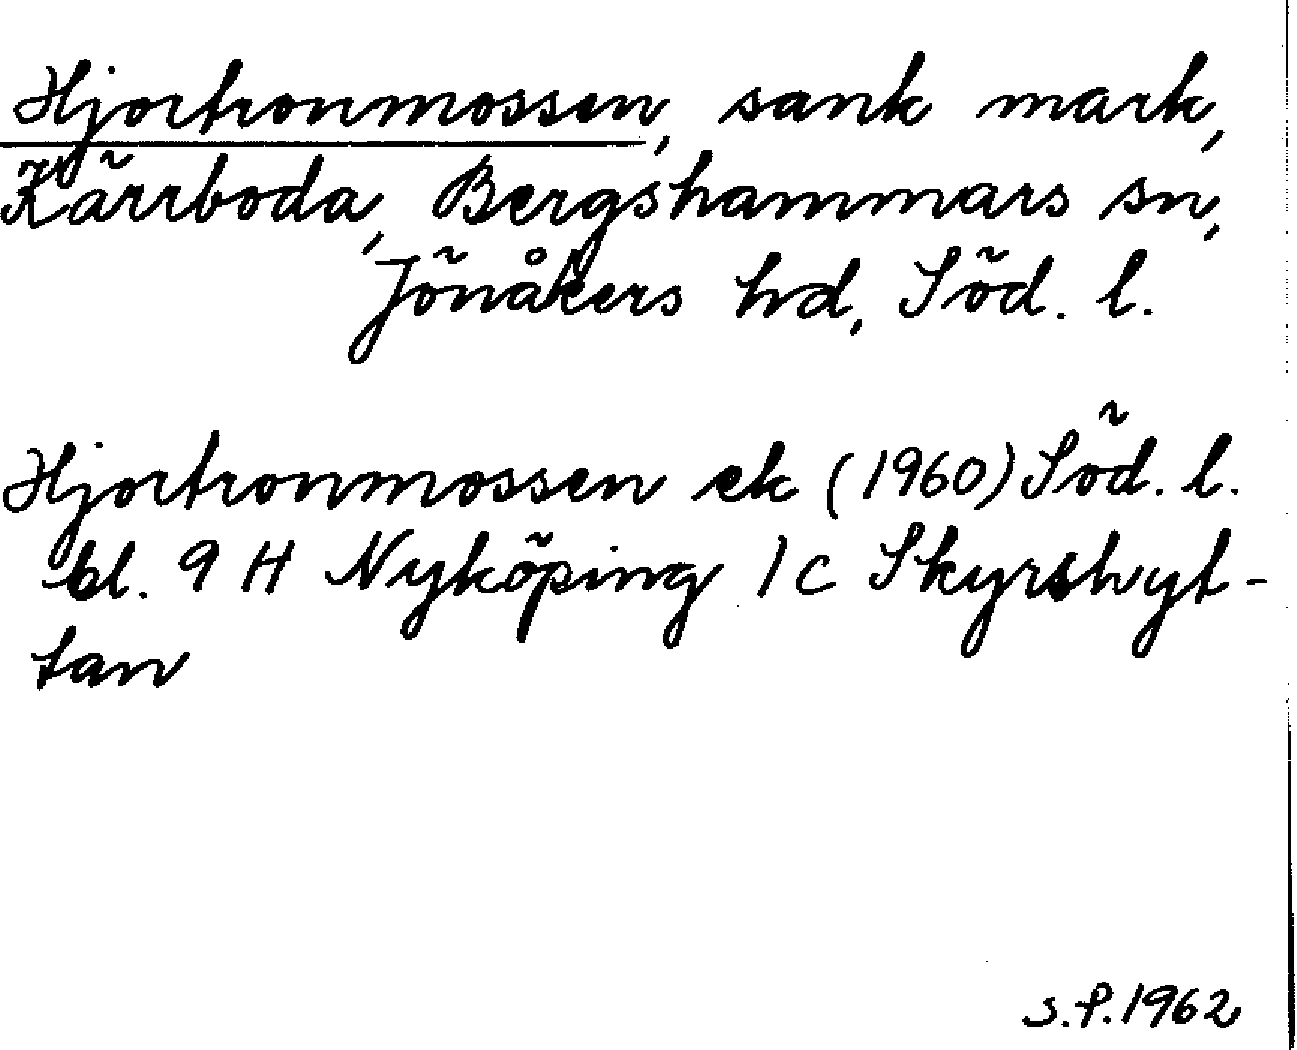 Hjortronmossen, sank mark,
Kärrboda, Bergshammars sn,
Jönåkers hd, Söd. l.
Hjortronmossen ek (1960) Söd. l.
bl. 9 H Nyköping 1 c Skyrshyt-
tan
S.P. 1962